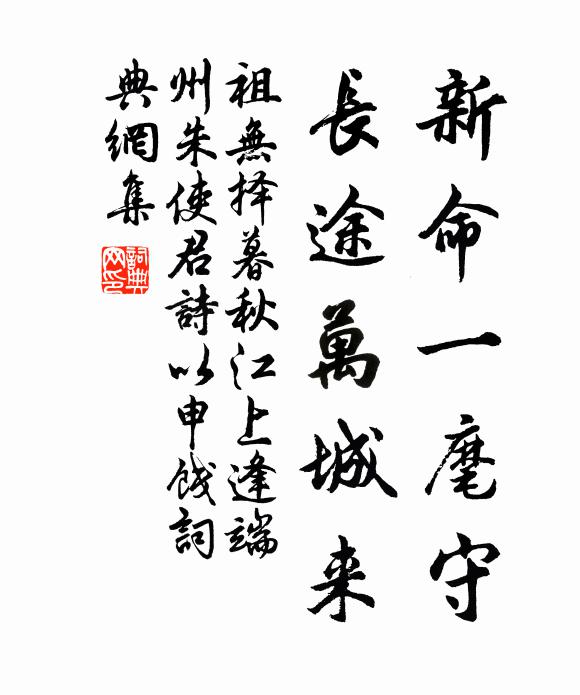 新命一麾守
長途萬城来
祖無择暮秋江上逢端
州朱使君詩以申餞詞
典網集
詞典网印